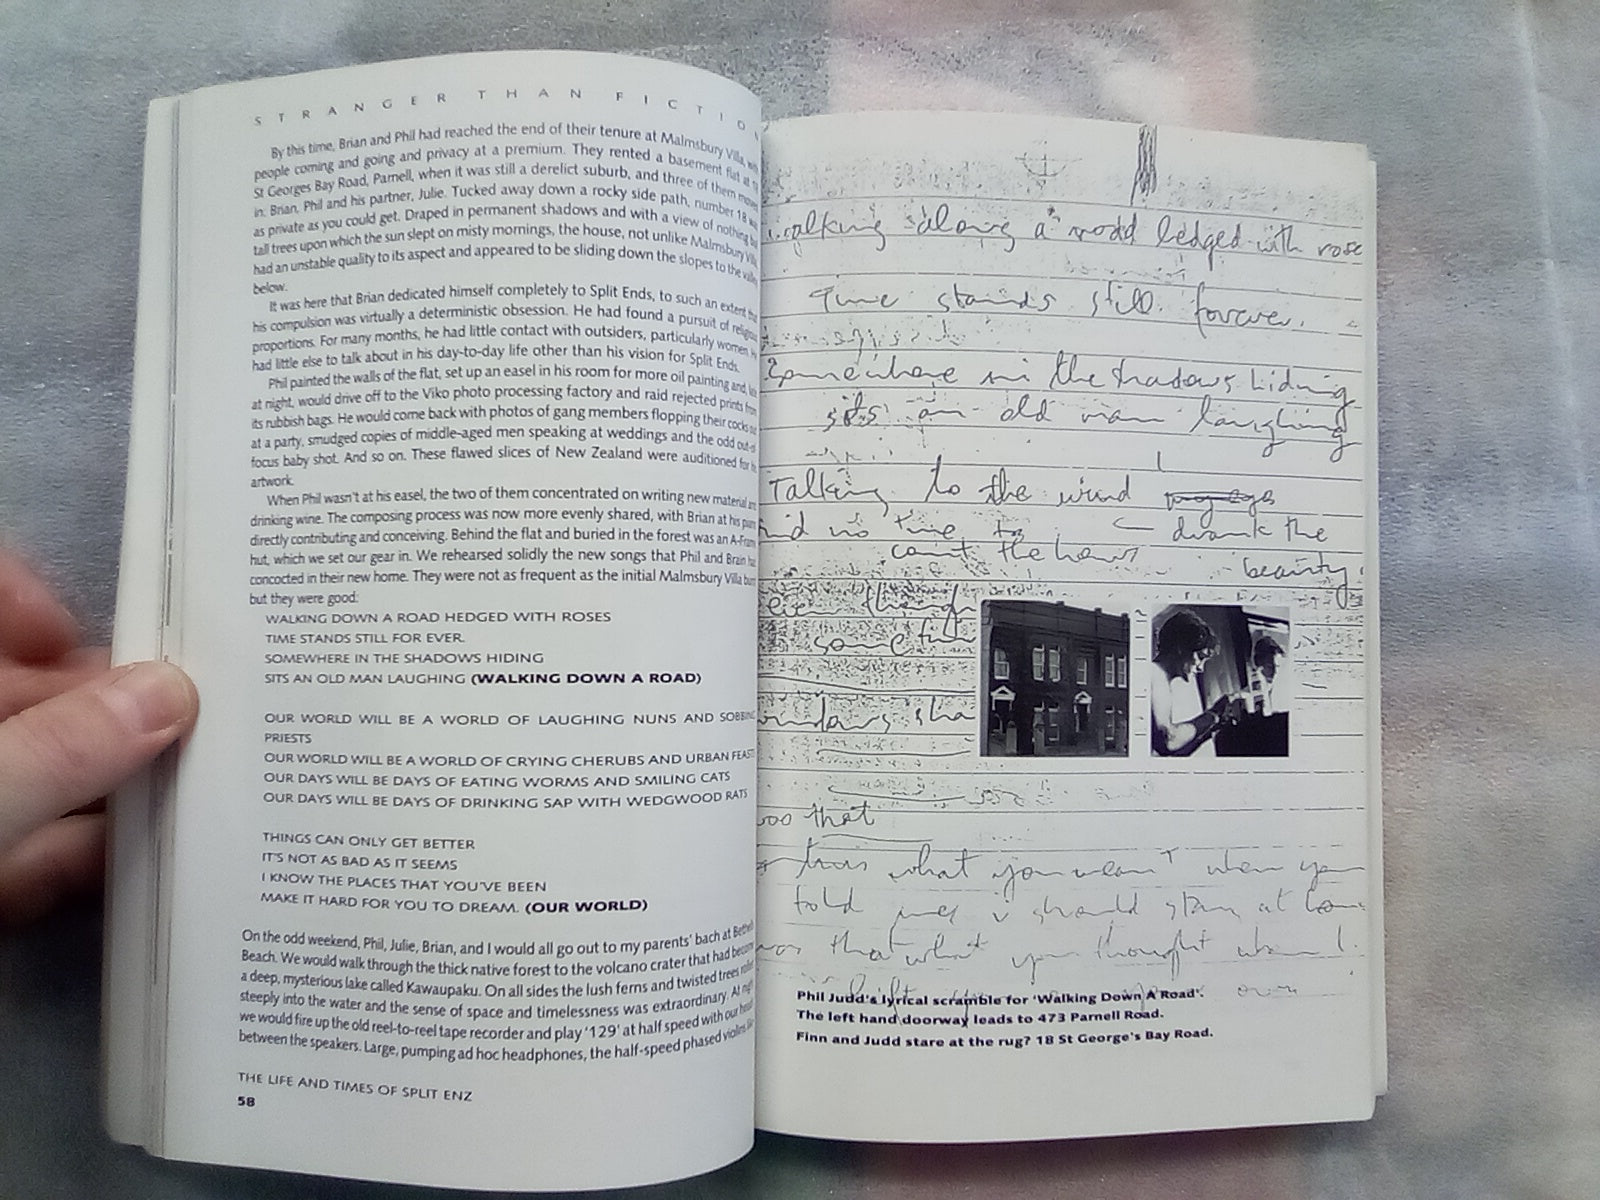 STRANGER THAN FICTION
By this time, Brian and Phil had reached the end of their tenure at Malmsbury Villa, with
people coming and going and privacy at a premium. They rented a basement flat at 18
St Georges Bay Road, Parnell, when it was still a derelict suburb, and three of them moved
in: Brian, Phil and his partner, Julie. Tucked away down a rocky side path, number 18 was
as private as you could get. Draped in permanent shadows and with a view of nothing but
tall trees upon which the sun slept on misty mornings, the house, not unlike Malmsbury Villa,
had an unstable quality to its aspect and appeared to be sliding down the slopes to the valley
below.
It was here that Brian dedicated himself completely to Split Ends, to such an extent that
his compulsion was virtually a deterministic obsession. He had found a pursuit of religious
proportions. For many months, he had little contact with outsiders, particularly women. He
had little else to talk about in his day-to-day life other than his vision for Split Ends.
Phil painted the walls of the flat, set up an easel in his room for more oil painting and, late
at night, would drive off to the Viko photo processing factory and raid rejected prints from
its rubbish bags. He would come back with photos of gang members flopping their cocks out
at a party, smudged copies of middle-aged men speaking at weddings and the odd out-of-
focus baby shot. And so on. These flawed slices of New Zealand were auditioned for his
artwork.
When Phil wasn't at his easel, the two of them concentrated on writing new material and
drinking wine. The composing process was now more evenly shared, with Brian at his piano
directly contributing and conceiving. Behind the flat and buried in the forest was an A-Frame
hut, which we set our gear in. We rehearsed solidly the new songs that Phil and Brain had
concocted in their new home. They were not as frequent as the initial Malmsbury Villa burst
but they were good:
WALKING DOWN A ROAD HEDGED WITH ROSES
TIME STANDS STILL FOR EVER.
SOMEWHERE IN THE SHADOWS HIDING
SITS AN OLD MAN LAUGHING (WALKING DOWN A ROAD)
OUR WORLD WILL BE A WORLD OF LAUGHING NUNS AND SOBBING
PRIESTS
OUR WORLD WILL BE A WORLD OF CRYING CHERUBS AND URBAN FEASTS
OUR DAYS WILL BE DAYS OF EATING WORMS AND SMILING CATS
OUR DAYS WILL BE DAYS OF DRINKING SAP WITH WEDGWOOD RATS
THINGS CAN ONLY GET BETTER
IT'S NOT AS BAD AS IT SEEMS
I KNOW THE PLACES THAT YOU'VE BEEN
MAKE IT HARD FOR YOU TO DREAM. (OUR WORLD)
On the odd weekend, Phil, Julie, Brian, and I would all go out to my parents' bach at Bethells
Beach. We would walk through the thick native forest to the volcano crater that had become
a deep, mysterious lake called Kawaupaku. On all sides the lush ferns and twisted trees rolled
steeply into the water and the sense of space and timelessness was extraordinary. At night
we would fire up the old reel-to-reel tape recorder and play '129' at half speed with our heads
between the speakers. Large, pumping ad hoc headphones, the half-speed phased violins like
THE LIFE AND TIMES OF SPLIT ENZ
58
walking along a road hedged with rose
Time stands still forever.
Somewhere in the shadows hiding
sits an old man laughing
Talking to the wind
no time to drank the
count the hours beauty.
some
sha
that
what you mean't when you
told me i should stay at
that what you thought when I
Phil Judd's lyrical scramble for 'Walking Down A Road'.
The left hand doorway leads to 473 Parnell Road.
Finn and Judd stare at the rug? 18 St George's Bay Road.